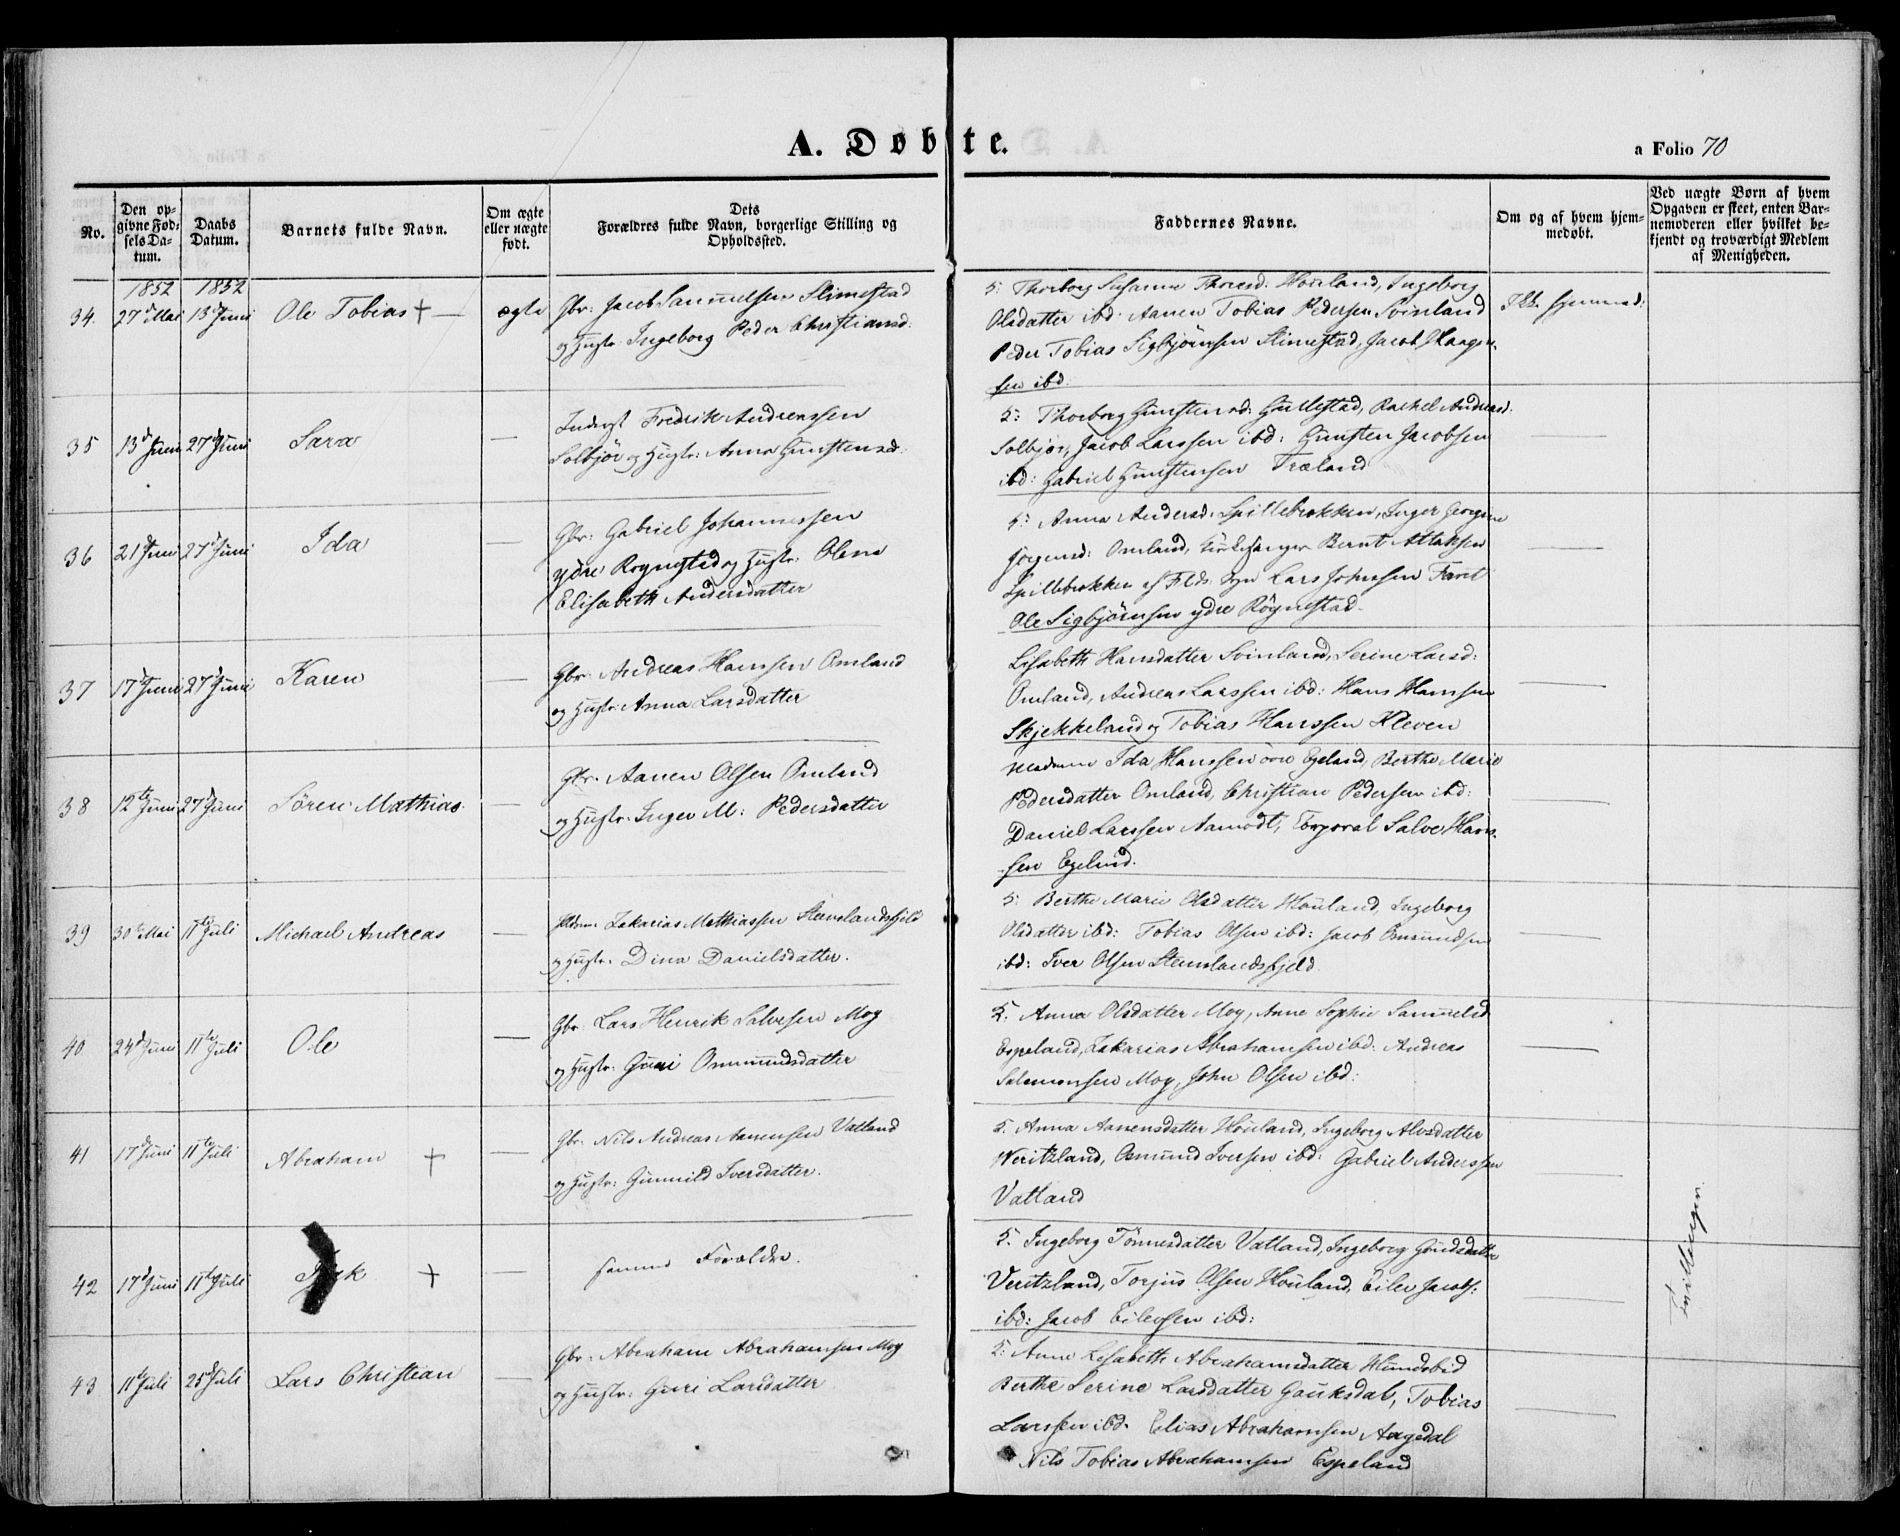 A. Døbte.
a Folio 70
No.
Den op-
givne Fød-
sels Da-
tum.
Daabs
Datum.
Barnets fulde Navn.
Om ægte
eller uægte
født.
Dets
Forældres fulde Navn, borgerlige Stilling og
Opholdssted.
Faddernes Navne.
Om og af hvem hjem-
medøbt.
Ved uægte Børn af hvem
Opgaven er skeet, enten Bar-
nemoderen eller hvilket be-
kjendt og troværdigt Medlem
af Menigheden.
1852 1852
34. 27de Mai 13de Juni Ole Tobias + — ægte
Gbr: Jacob Samuelsen Slimestad
og Hustr: Ingeborg Peder Christiansd:
5: Thorborg Susanna Thoresd: Houland, Ingeborg
Olsdatter ibd: Aanen Tobias Pedersen Svinland
Peder Tobias Sigbjørnsen Slimestad, Jacob Haagen-
sen ibd.
Ikke hjemmed:
35 13de Juni 27de Juni Sara —
Inderst Fredrik Andreassen
Solbjør og Hustr: Anna Gunstensd:
5: Thorborg Gunstensd: Gullestad, Rachel Andreasd:
Solbjør, Jacob Larssen ibd: Gunsten Jacobsen
ibd: Gabriel Gunstensen Træland
—
36 21de Juni 27de Juni Ida —
Gbr: Gabriel Johannessen
ydre Røgnstad og Hustr: Olene
Elisabeth Andersdatter
5: Anna Andersd: Spillebrokken, Inger Georgine
Jørgensd: Omland, Kirkesanger Bernt Attaksen
Spillebrokken af Fleds Sogn Lars Johnssen Faret
Ole Sigbjørnsen ydre Røgnestad.
—
37 17de Juni 27de Juni Karen —
Gbr: Andreas Hanssen Omland
og Hustr: Anna Larsdatter
Lisabeth Hansdatter Svinland, Serine Larsd:
Omland, Andreas Larssen ibd: Hans Hanssen
Skjekkeland og Tobias Hanssen Kleven
—
38 12te Juni 27de Juni Søren Mathias. —
Gbr. Aanen Olsen Omland
og Hustr: Inger M: Pedersdatter
Madame Ida Hanssen øvre Egeland, Berthe Marie
Pedersdatter Omland, Christian Pedersen ibd:
Daniel Larssen Aamodt, Corporal Salve Hans-
sen Egeland.
—
39 30te Mai 11te Juli Michael Andreas —
Zakarias Mathiassen Stemlandsfjeld
og Hustr: Dina Danielsdatter.
5: Berthe Marie Olsdatter Houland, Ingeborg
Olsdatter ibd: Tobias Olsen ibd: Jacob Osmundsen
ibd: Iver Olsen Stemlandsfjeld
—
40 24de Juni 11te Juli Ole —
Gbr: Lars Henrik Salvesen Moy
og Hustr: Guri Ommundsdatter
5. Anna Olsdatter Moy, Anne Sophie Samuelsd
Espeland, Zakarias Abrahamsen ibd: Andreas
Salomonsen Moy, John Olsen ibd:
—
41 17de Juni 11te Juli Abraham + —
Gbr: Nils Andreas Aanensen Vatland
og Hustr: Gunnild Iversdatter.
5. Anna Aanensdatter Houland, Ingeborg Alvsdatter
Veritzland, Osmund Iversen ibd: Gabriel Anderssen
Vatland
—
42 17de Juni 11te Juli + —
samme Forældre.
5. Ingeborg Tønnesdatter Vatland, Ingeborg Gundsdatter
Veritzland, Torjus Olsen Houland, Eiler Jacobs:
ibd: Jacob Eilersen ibd:
—
Tvillinger
43 11te Juli 25de Juli Lars Christian —
Gbr: Abraham Abrahamsen Moy
og Hustr: Guri Larsdatter
5: Anne Lisabeth Abrahamsdatter Hundebid
Berthe Serine Larsdatter Gauksdal, Tobias
Larssen ibd. Elias Abrahamsen Aagedal
Nils Tobias Abrahamsen Espeland
—